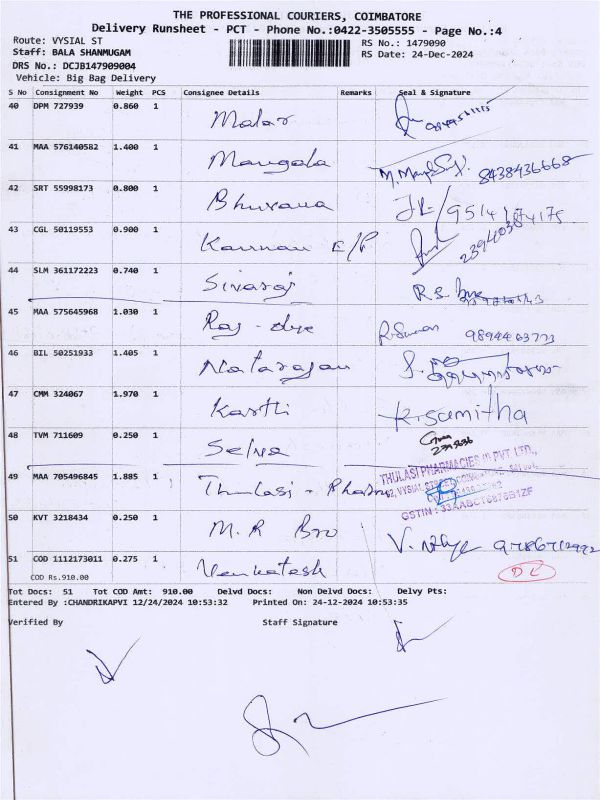 THE PROFESSIONAL COURIERS, COIMBATORE
Delivery Runsheet - PCT - Phone No.:0422-3505555 - Page No.:4
Route: VYSIAL ST RS No.: 1479090
Staff: BALA SHANMUGAM RS Date: 24-Dec-2024
DRS No.: DCJB147909004
Vehicle: Big Bag Delivery
S No Consignment No Weight PCS Consignee Details Remarks Seal & Signature
40 DPM 727939 0.860 1 Malar
41 MAA 576140582 1.400 1 Mangala 8438436668
42 SRT 55998173 0.800 1 Bhuvana
43 CGL 50119553 0.900 1 Kannan E/P
44 SLM 361172223 0.740 1 Sivaraj R.S.
45 MAA 575645968 1.030 1 Raj - dye 9894463773
46 BIL 50251933 1.405 1 Natarajan
47 CMM 324067 1.970 1 Karthi K.samitha
48 TVM 711609 0.250 1 Selva
49 MAA 705496845 1.885 1 Thulasi - Pharma THULASI PHARMACIES (I) PVT. LTD.,
50 KVT 3218434 0.250 1 M.R Bro
51 COD 1112173011 0.275 1 Venkatesh
COD Rs.910.00
Tot Docs: 51 Tot COD Amt: 910.00 Delvd Docs: Non Delvd Docs: Delvy Pts:
Entered By :CHANDRIKAPVI 12/24/2024 10:53:32 Printed On: 24-12-2024 10:53:35
Verified By Staff Signature